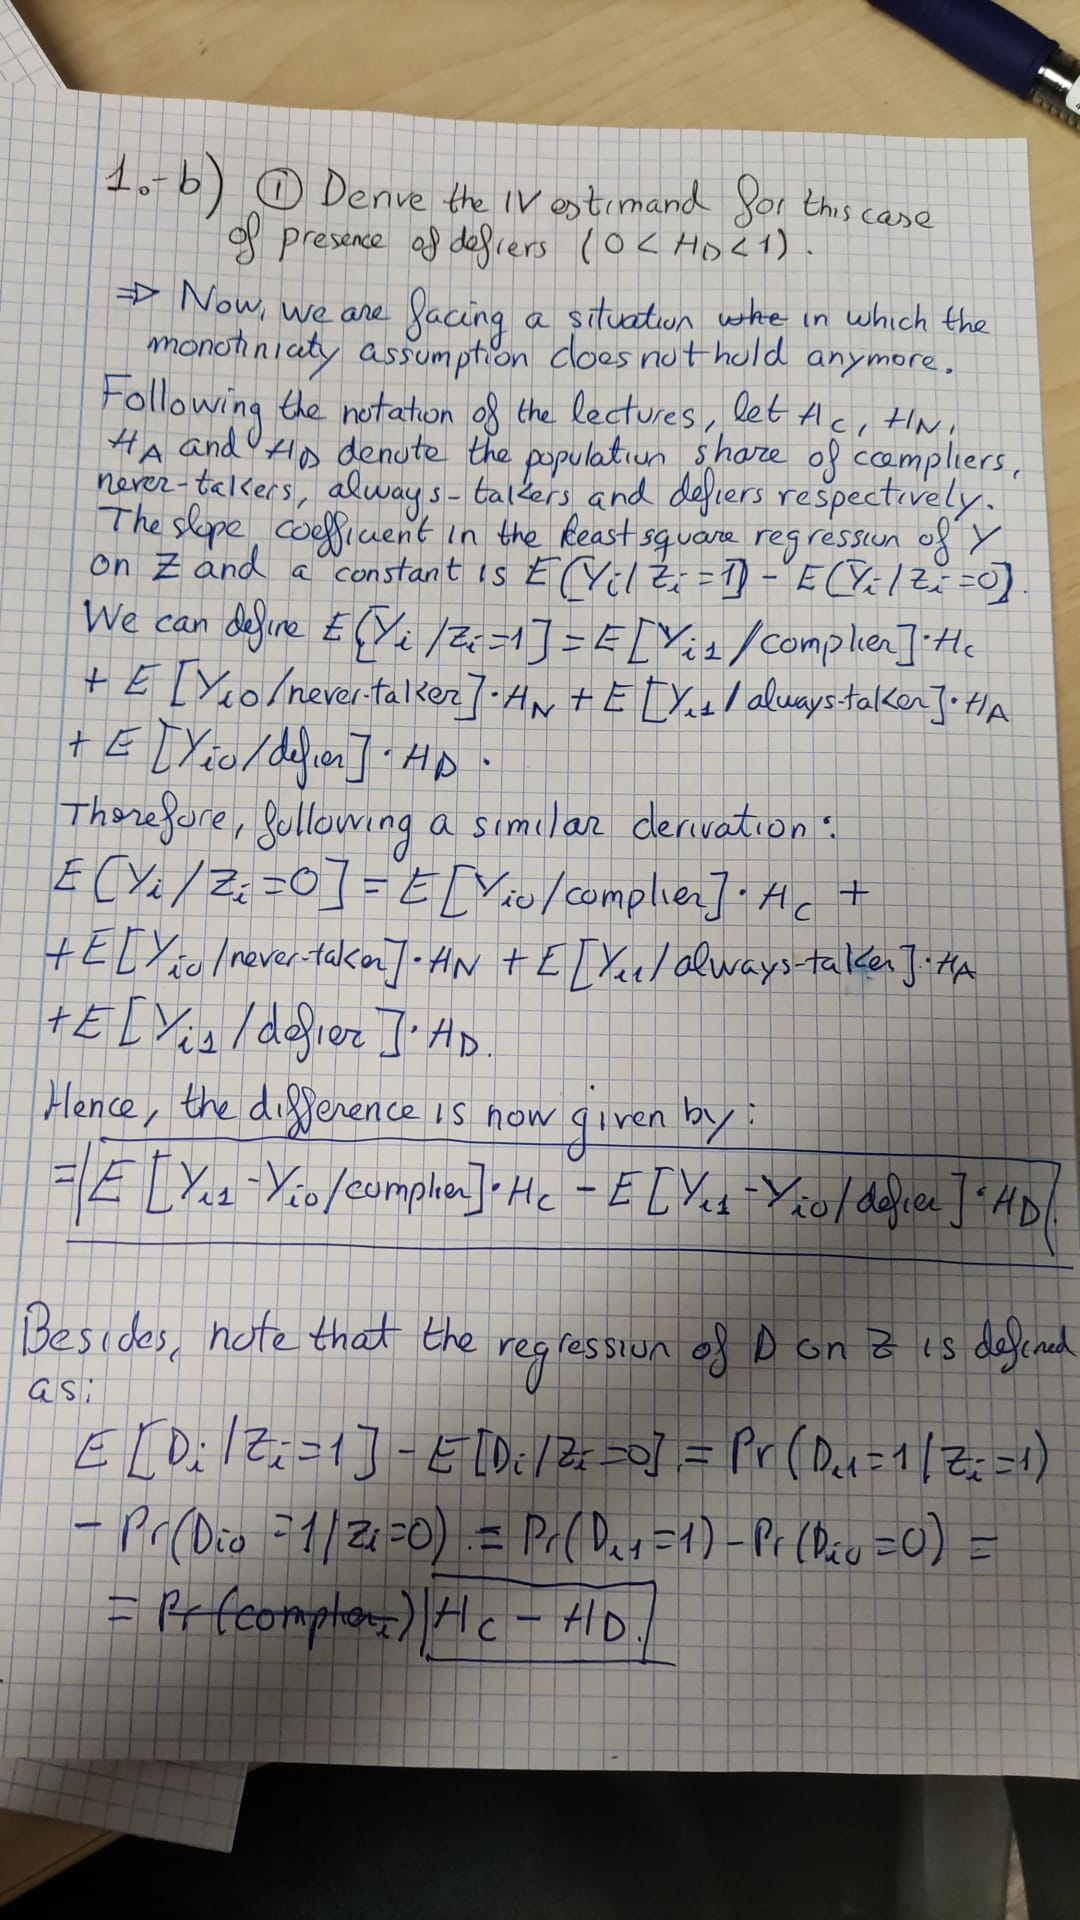 1.-b) ① Derive the IV estimand for this case
of presence of defiers (0 < HD < 1).
⇒ Now, we are facing a situation whe in which the
monotiniaty assumption does not hold anymore.
Following the notation of the lectures, let HC, HN,
HA and HD denote the population share of ccompliers,
never-takers, always-takers and defiers respectively.
The slope coefficient in the least square regression of Y
on Z and a constant is E[Yi/Zi=1] - E[Yi/Zi=0].
We can define E[Yi/Zi=1] = E[Yi1/complier]·Hc
+ E[Yi0/never-taker]·HN + E[Yi1/always-taker]·HA
+ E[Yi0/defier]·HD.
Therefore, following a similar derivation:
E[Yi/Zi=0] = E[Yi0/complier]·HC +
+E[Yi0/never-taker]·HN + E[Yi1/always-taker]·HA
+E[Yi1/defier]·HD.
Hence, the difference is now given by:
= E[Yi1-Yi0/complier]·HC - E[Yi1-Yi0/defier]·HD.
Besides, note that the regression of D on Z is defined
as:
E[Di/Zi=1] - E[Di/Zi=0] = Pr(Di1=1/Zi=1)
- Pr(Di0=1/Zi=0) = Pr(Di1=1) - Pr(Di0=0) =
= Pr(complieri) HC - HD.